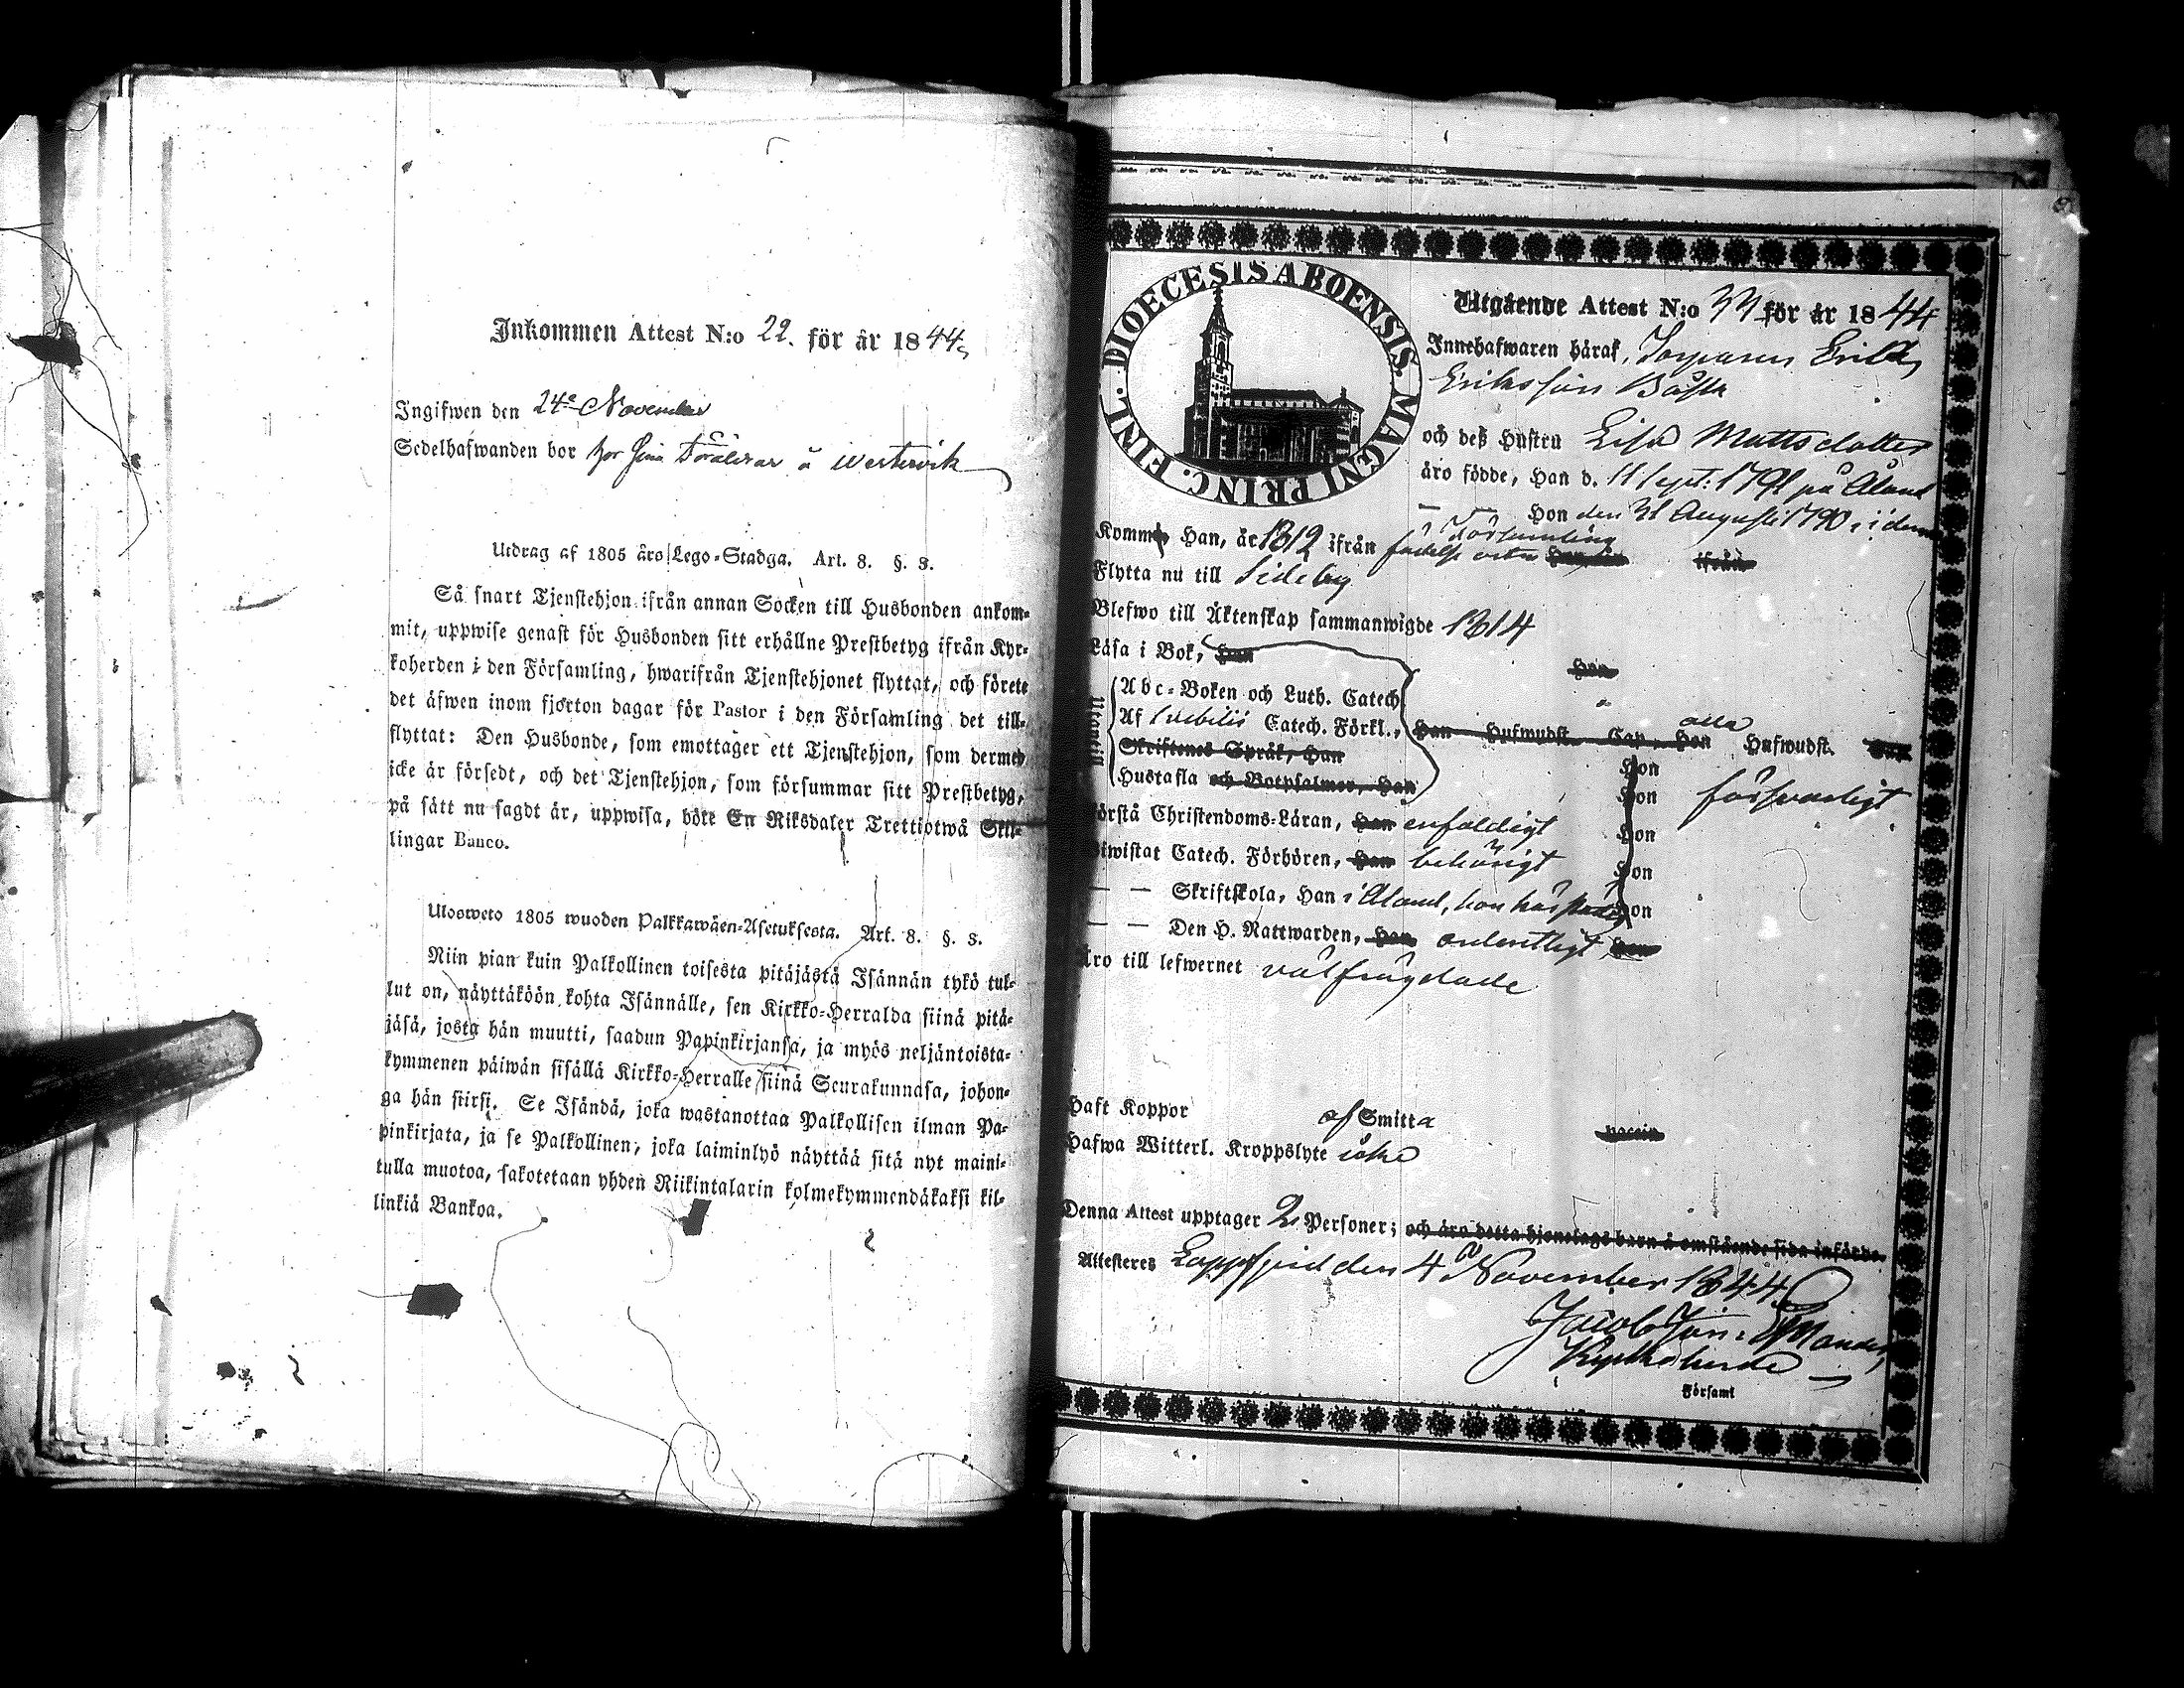 Inkommen Attest N:o 22. för år 1844
Ingifwen den 24e November
Sedelhafwanden bor hos sina Föräldrar å Westervik
Utdrag af 1805 års Lego-Stadga. Art. 8. §. 3.
Så snart Tjenstehjon ifrån annan Socken till Husbonden ankom-
mit, uppwise genast för Husbonden sitt erhållne Prestbetyg ifrån Kyr-
koherden i den Församling, hwarifrån Tjenstehjonet flyttat, och förete
det äfwen inom fjorton dagar för Pastor i den Församling det till-
flyttat: Den Husbonde, som emottager ett Tjenstehjon, som dermed
icke är försedt, och det Tjenstehjon, som försummar sitt Prestbetyg,
på sätt nu sagdt är, uppwisa, böte En Riksdaler Trettiotwå Skil-
lingar Banco.
Ulosweto 1805 wuoden Palkkawäen-Asetuksesta. Art. 8. §. 3.
Niin pian kuin Palkollinen toisesta pitäjästä Isännän tykö tul-
lut on, näyttäköön kohta Isännälle, sen Kirkko-Herralda siinä pitä-
jäsä, josta hän muutti, saadun Papinkirjansa, ja myös neljäntoista-
kymmenen päiwän sisällä Kirkko-Herralle siinä Seurakunnasa, johon-
ga hän siirsi. Se Isändä, joka wastanottaa Palkollisen ilman Pa-
pinkirjata, ja se Palkollinen, joka laiminlyö näyttää sitä nyt maini-
tulla muotoa, sakotetaan yhden Riikintalarin kolmekymmendäkaksi kil-
linkiä Bankoa.
DIOECESIS ABOENSIS. MAGNI PRINC. FINL.
Utgående Attest N:o 33 för år 1844
Innehafwaren häraf, Torparen Erik
Eriksson Båsk
och deß Hustru Lisa Mattsdotter
äro födde, Han d. 11 Sept: 1791 på Åland
— — Hon den 31 Augusti 1790 i denna
Församling
Kommen Han, år 1812 ifrån födelse orten Hon, år ifrån
Flytta nu till Sideby
Blefwo till Äktenskap sammanwigde 1814
Läsa i Bok, Han Hon
Utantill
Abc-Boken och Luth. Catech
Af Svebilii Catech. Förkl., Han Hufwudst. Cap. Hon alla Hufwudst. Cap
Skriftenes Språk, Han Hon
Hustafla och Botpsalmer, Han Hon försvarligt
Förstå Christendoms-Läran, Han enfaldigt Hon
Biwistat Catech. Förhören, Han behörigt Hon
— — Skriftskola, Han i Åland, hon härstädes Hon
— — Den H. Nattwarden, Han ordentligt Hon
Äro till lefwernet välfrägdade
Haft Koppor af Smitta vaccin
Hafwa Witterl. Kroppslyte icke
Denna Attest upptager 2 Personer; och äro detta hjonelags barn å omstående sida införde.
Attesteres Lappfjerd den 4 November 1844
Kyrkoherde
Församl